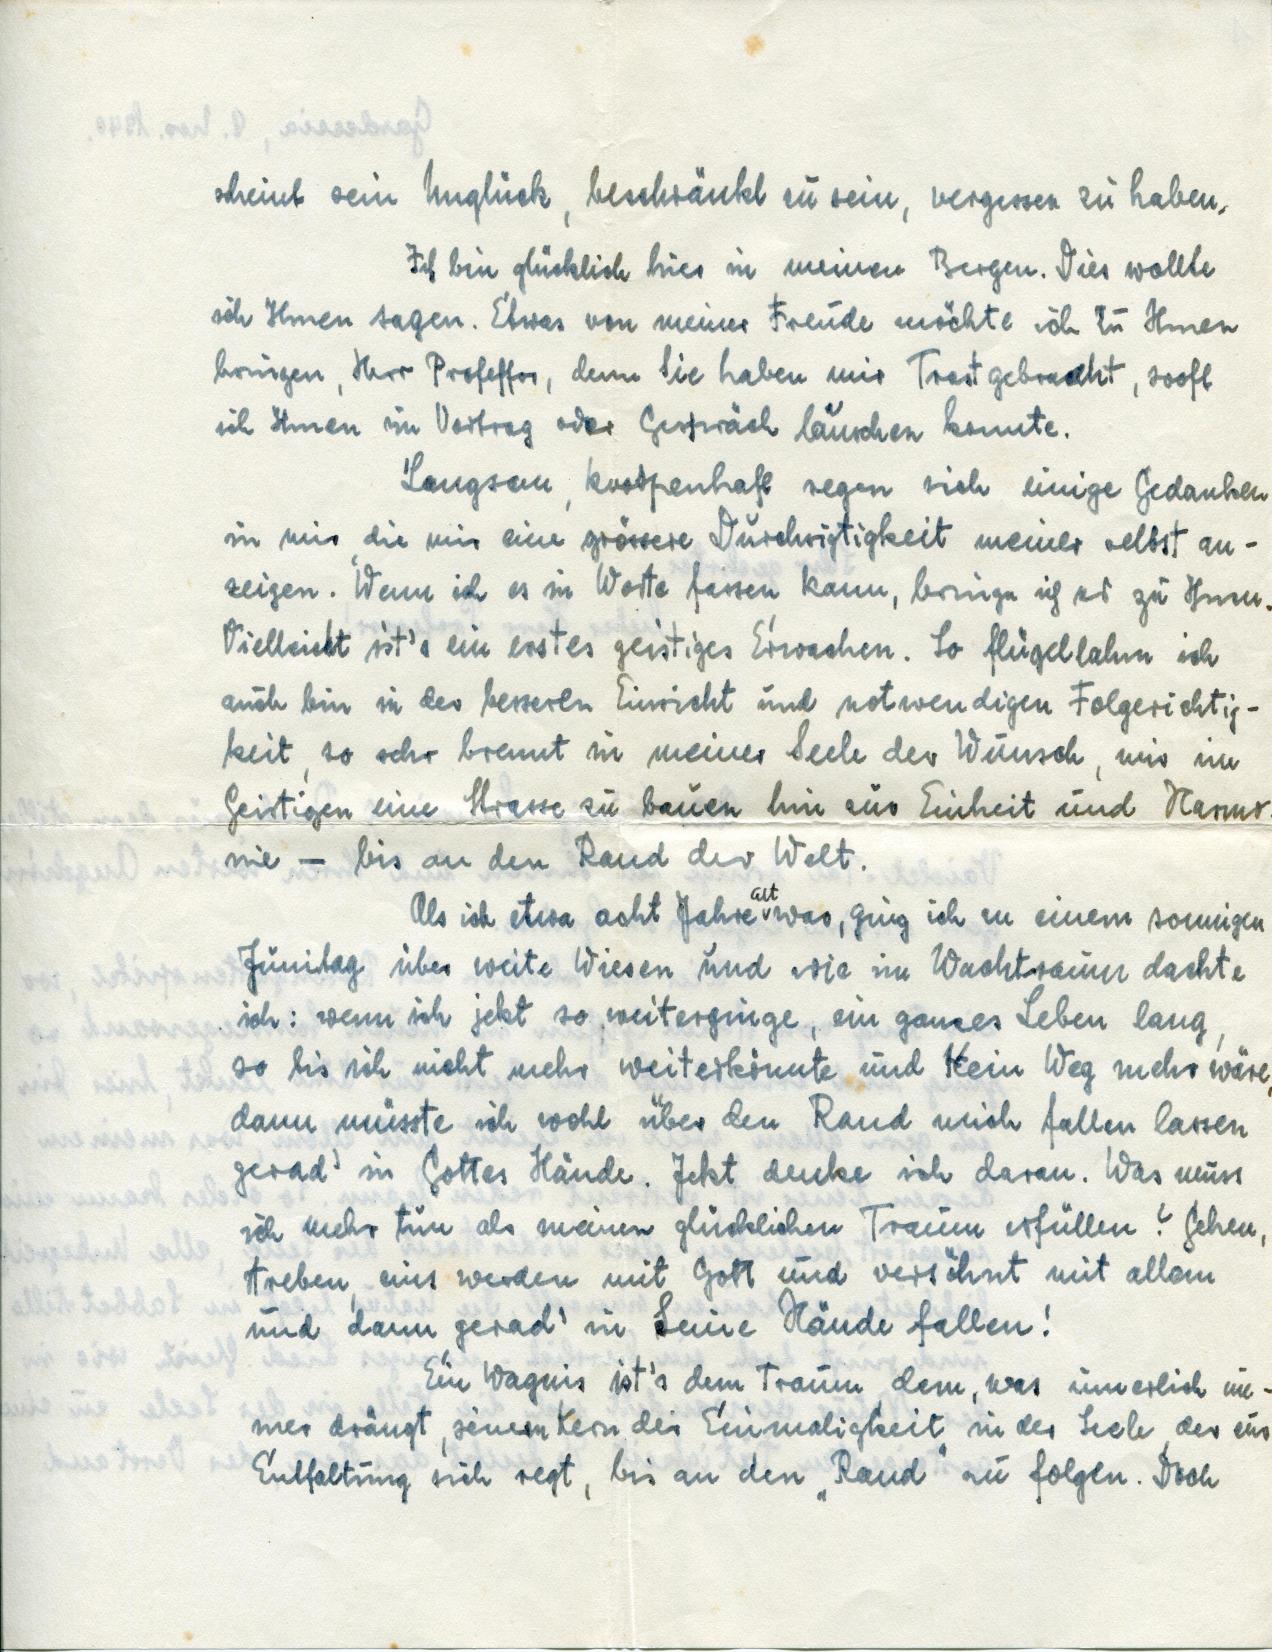 scheint sein Unglück, beschränkt zu sein, vergessen zu haben.
Ich bin glücklich hier in meinen Bergen. Dies wollte
ich Ihnen sagen. Etwas von meiner Freude möchte ich zu Ihnen
bringen, Herr Professor, denn Sie haben mir Trost gebracht, sooft
ich Ihnen im Vortrag oder Gespräch läuschen konnte.
Langsam, knospenhaft regen sich einige Gedanken
in mir, die mir eine grössere Durchsigtigkeit meiner selbst an-
zeigen. Wenn ich es in Worte fassen kann, bringe ich es zu Ihnen.
Vielleicht ist's ein erstes geistiges Erwachen. So flügellahm ich
auch bin in der besseren Einsicht und notwendigen Folgerichtig-
keit, so sehr brennt in meiner Seele der Wunsch, mir im
Geistigen eine Strasse zu bauen hin zur Einheit und Harmo-
nie — bis an den Rand der Welt.
Als ich etwa acht Jahre alt war, ging ich an einem sonnigen
Junitag über weite Wiesen und wie im Wachtraum dachte
ich: wenn ich jetzt so weiterginge, ein ganzes Leben lang,
so bis ich nicht mehr weiterkönnte und kein Weg mehr wäre,
dann müsste ich wohl über den Rand mich fallen lassen
gerad' in Gottes Hände. Jetzt denke ich daran. Was muss
ich mehr tun als meinen glücklichen Traum erfüllen? Gehen,
streben, eins werden mit Gott und versöhnt mit allem
und dann gerad' in Seine Hände fallen!
Ein Wagnis ist's dem Traum dem, was innerlich im-
mer drängt, seinem Kern der Einmaligkeit in der Seele, der zur
Entfaltung sich regt, bis an den „Rand" zu folgen. Doch